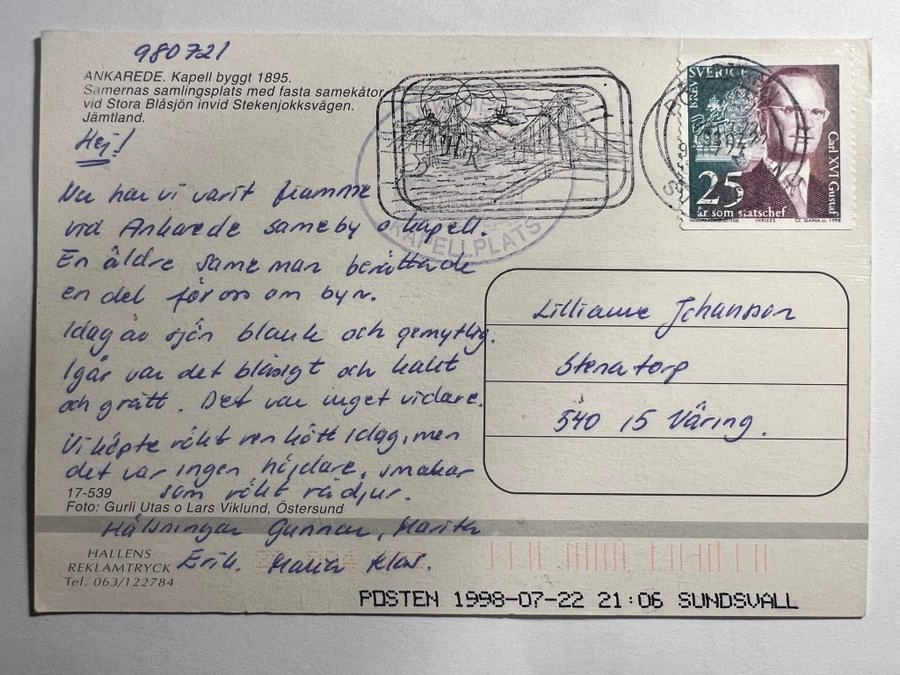 980721
ANKAREDE. Kapell byggt 1895.
Samernas samlingsplats med fasta samekåtor
vid Stora Blåsjön invid Stekenjokksvägen.
Jämtland.
Hej!
Nu har vi varit framme
vid Ankarede sameby o kapell.
En äldre same man berättade
en del för oss om byn.
Idag är sjön blank och gemytlig.
Igår var det blåsigt och kallt
och grått. Det var inget vidare.
Vi köpte rökt ren kött idag, men
det var ingen höjdare, smakar
som rökt rådjur.
17-539
Foto: Gurli Utas o Lars Viklund, Östersund
Hälsningar Gunnar, Marita
Erik. Maria Klas.
HALLENS
REKLAMTRYCK
Tel. 063/122784
KAPELLPLATS
SVERIGE
BREV
Carl XVI Gustaf
25
år som statschef
Lillianne Johansson
Stenatorp
540 15 Väring.
POSTEN 1998-07-22 21:06 SUNDSVALL